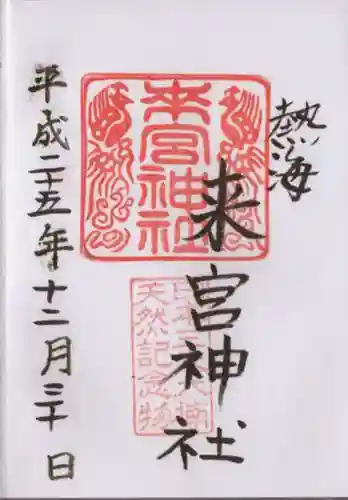 熱海
来宮神社
来宮神社
天然記念物
平成二十五年十二月三十日